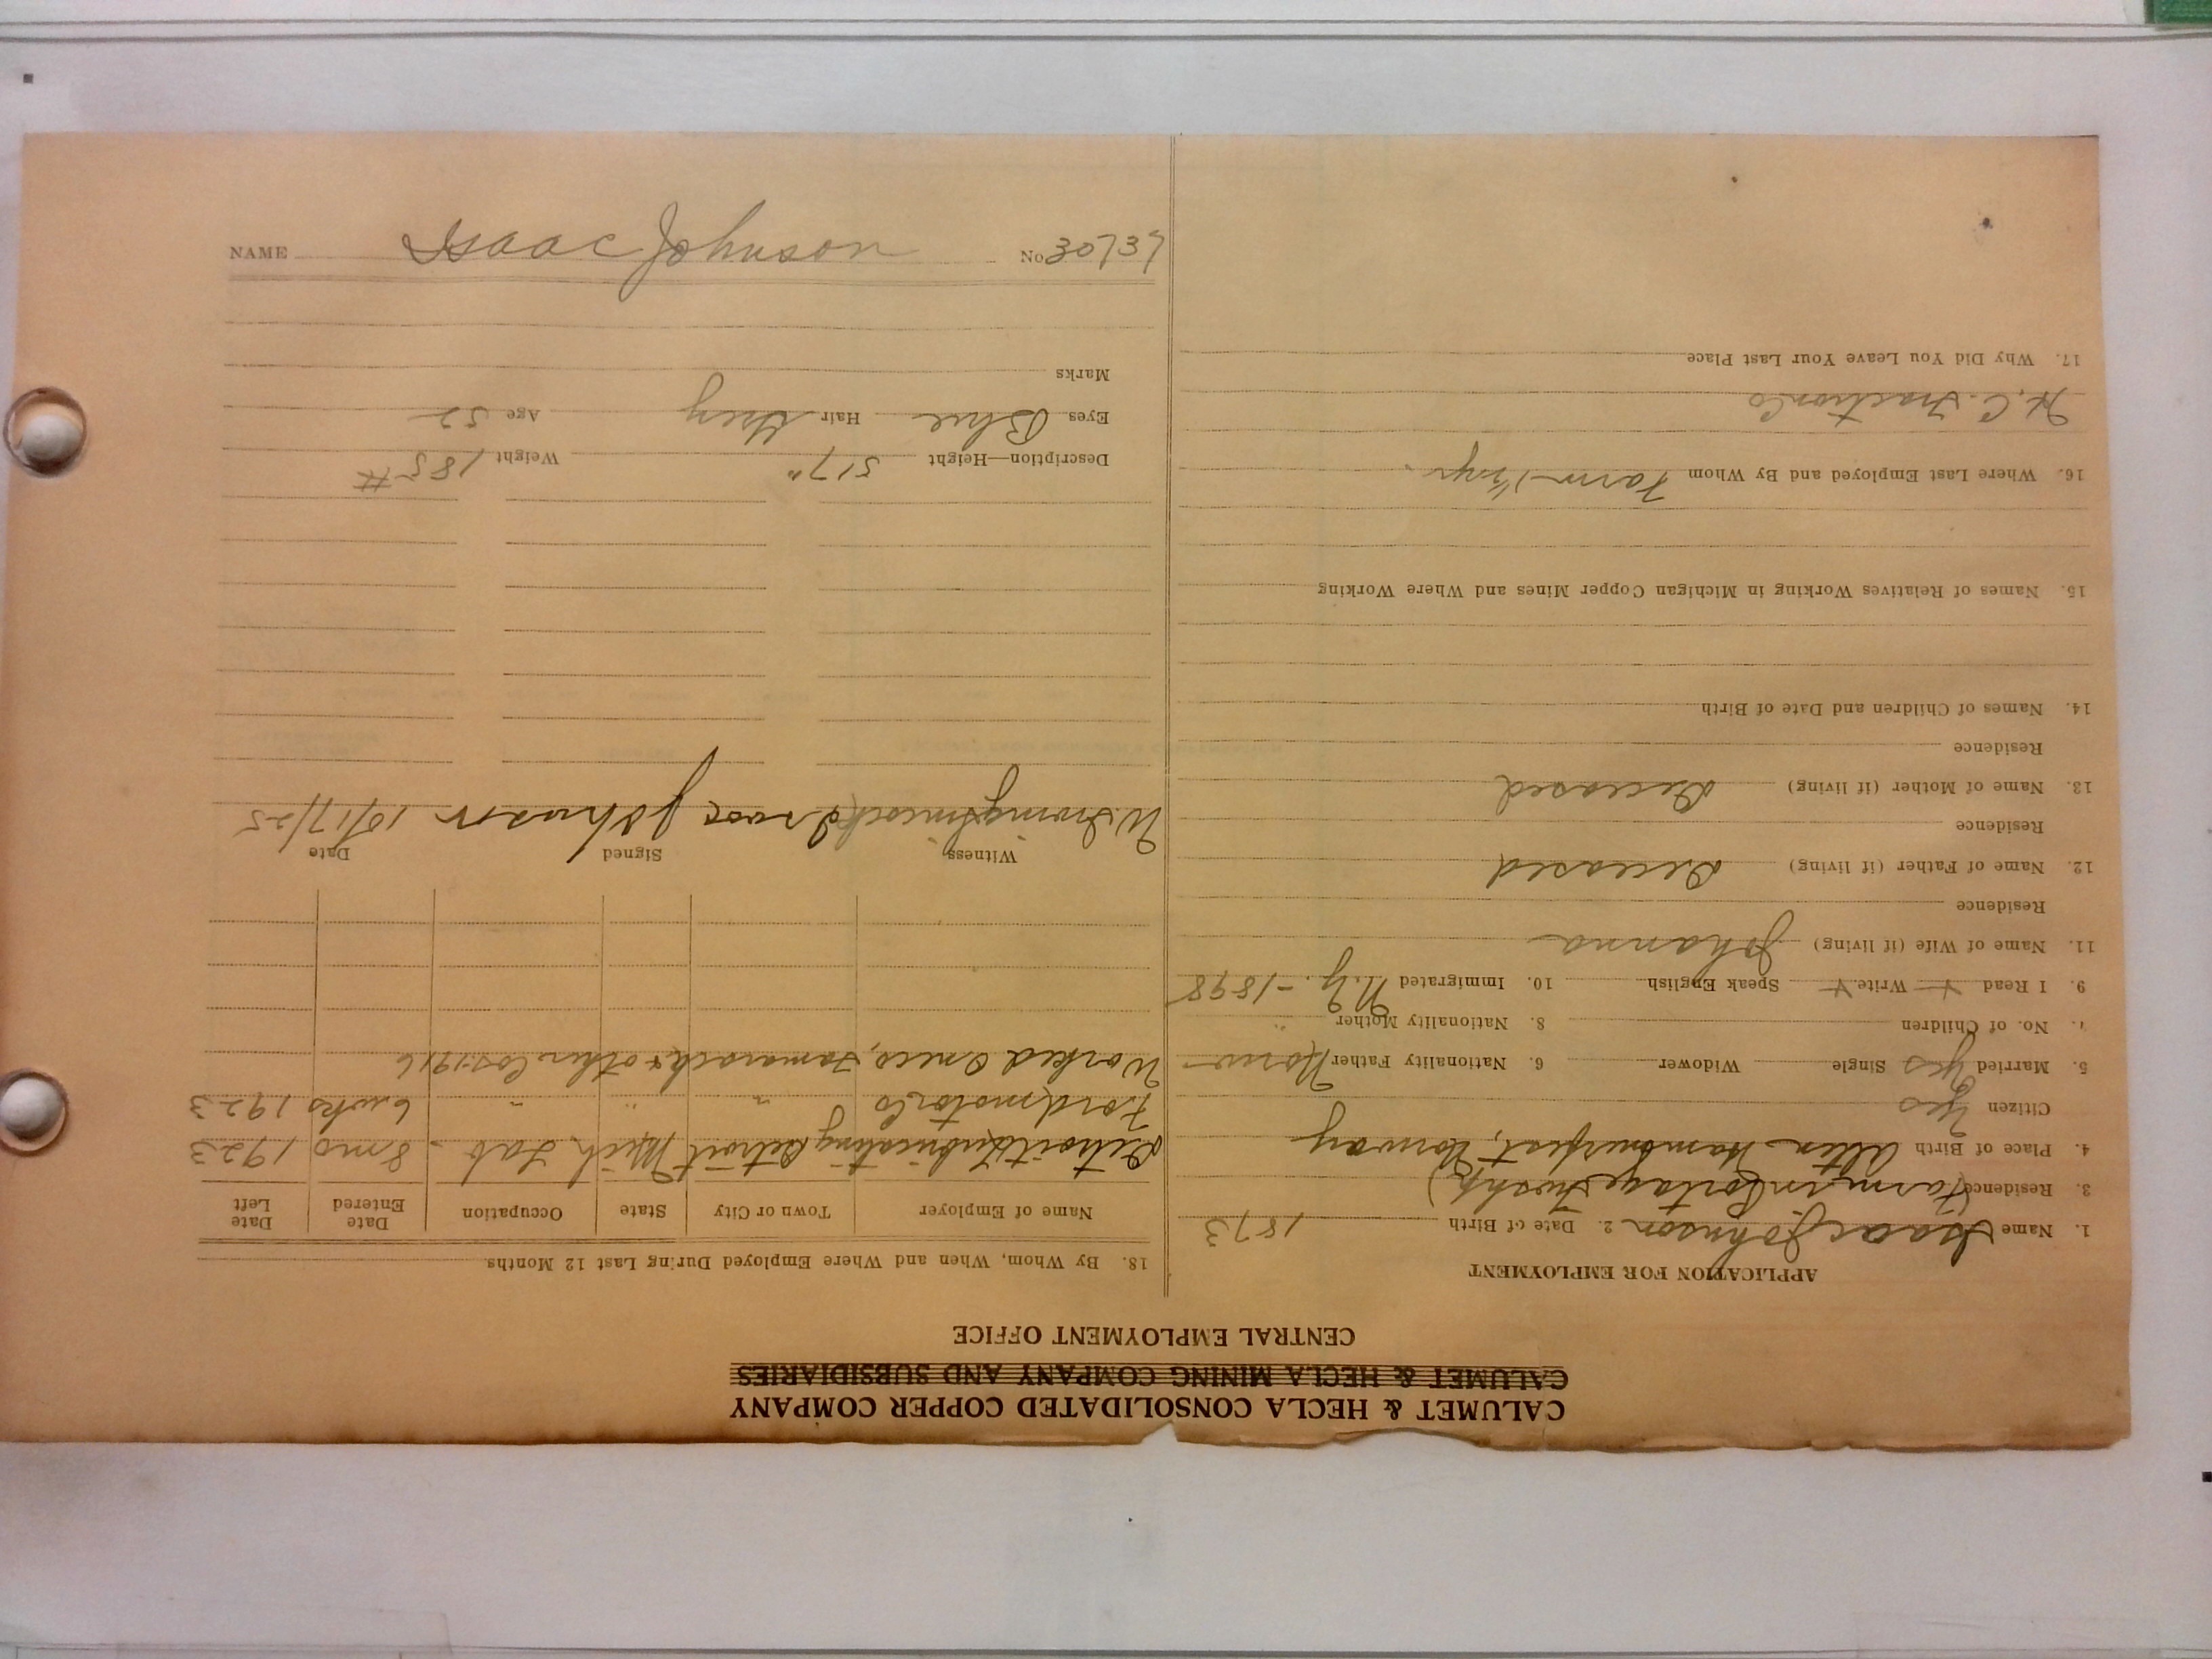 CALUMET & HECLA CONSOLIDATED COPPER COMPANY
CALUMET & HECLA MINING COMPANY AND SUBSIDIARIES
CENTRAL EMPLOYMENT OFFICE
APPLICATION FOR EMPLOYMENT
1. Name Isaac Johnson 2. Date of Birth 1873
3. Residence (Farm in Portage Twshp)
4. Place of Birth Alten Hammerfest, Norway
Citizen Yes
5. Married Yes Single Widower 6. Nationality Father Norw
7. No. of Children 8. Nationality Mother "
9. I Read + Write + Speak English 10. Immigrated N.Y. - 1898
11. Name of Wife (if living) Johanna
Residence
12. Name of Father (if living) Deceased
Residence
13. Name of Mother (if living) Deceased
Residence
14. Names of Children and Date of Birth
15. Names of Relatives Working in Michigan Copper Mines and Where Working
16. Where Last Employed and By Whom Farm - 1½ yr.
H. C. Traction Co
17. Why Did You Leave Your Last Place
18. By Whom, When and Where Employed During Last 12 Months
Name of Employer Town or City State Occupation Date Entered Date Left
Detroit Lubricating Detroit Mich Lab - 8 mo 1923
Ford motor Co " " " 6 wks 1923
Worked Osceo, Tamarack & other Cos. 1916
Witness Signed Date
Isaac Johnson 10/17/25
Description—Height 5'7" Weight 185 #
Eyes Blue Hair Grey Age 52
Marks
NAME Isaac Johnson No 30737